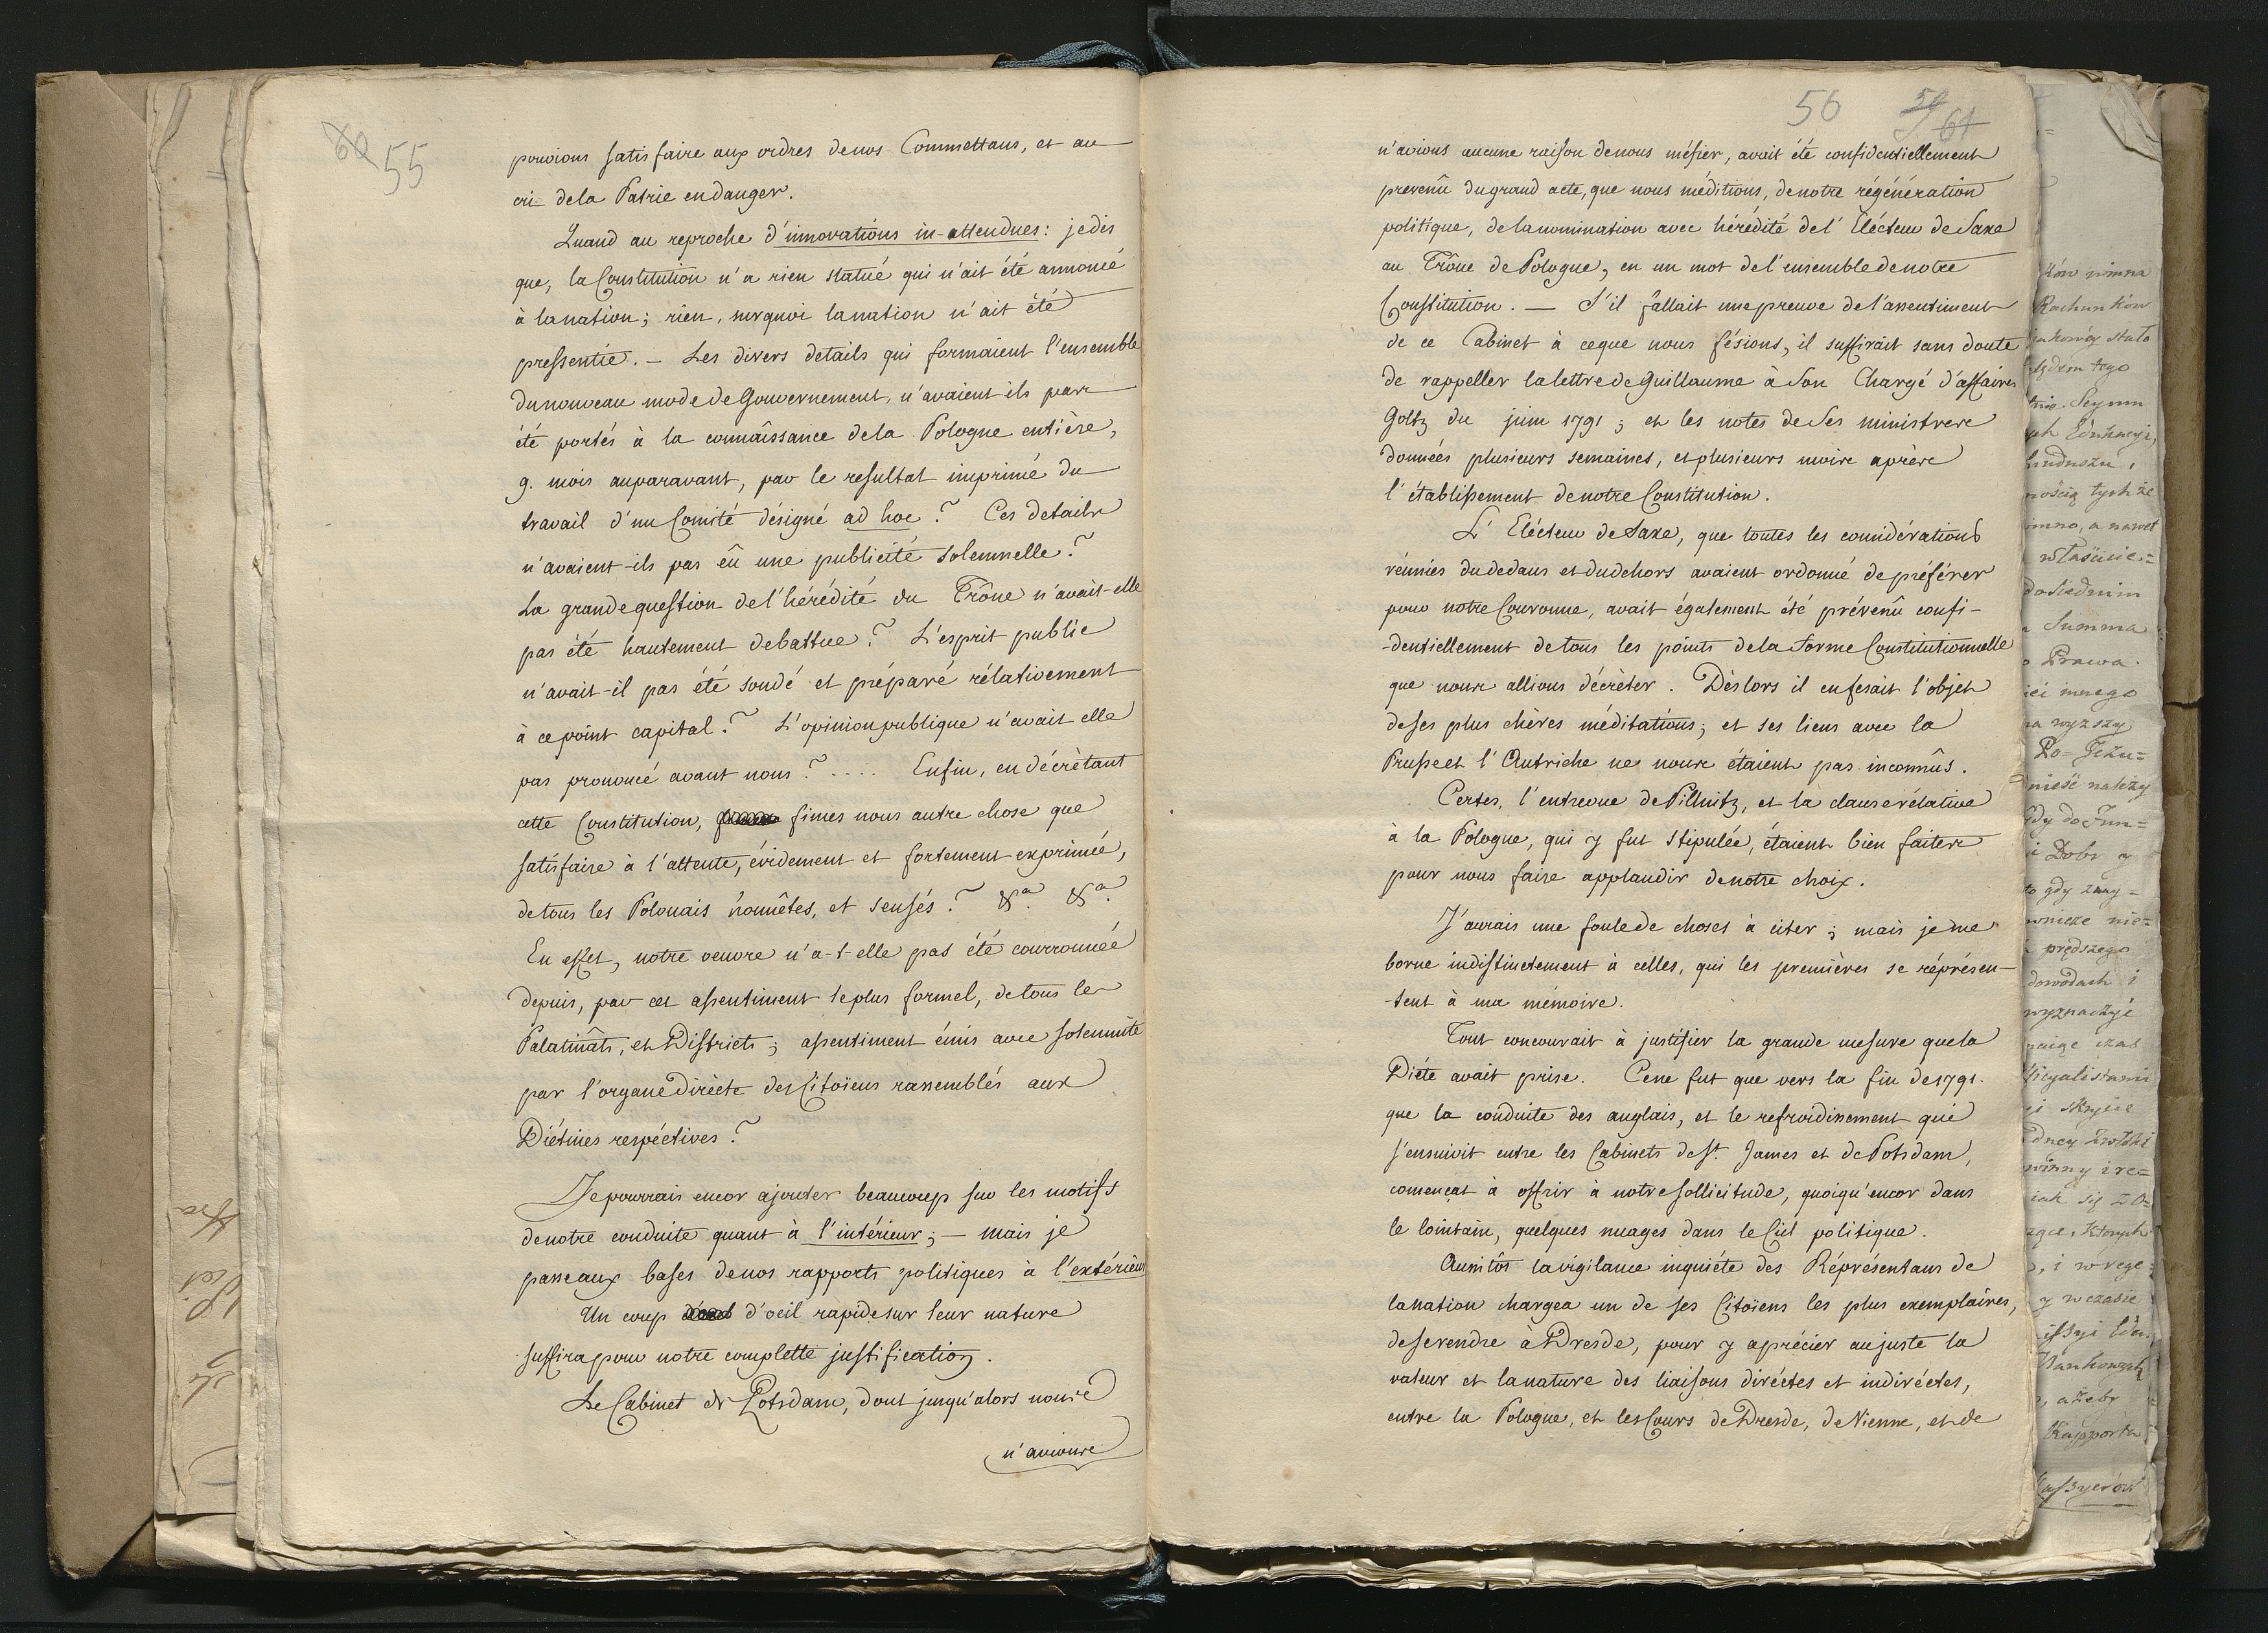 60 55
pouvions satisfaire aux ordres de nos Commettans, et au
cri de la Patrie en danger.
Quand au reproche d'innovations in-attendues: je dis
que, la Constitution n'a rien statué qui n'ait été annoncé
à la nation; rien, sur quoi la nation n'ait été
pressentie. — Les divers details qui formaient l'ensemble
du nouveau mode de Gouvernement, n'avaient ils pas
été portés à la connâissance de la Pologne entière,
9. mois auparavant, par le resultat imprimé du
travail d'un Comité désigné ad hoc? Ces details
n'avaient-ils pas eû une publicité solemnelle?
La grande question de l'hérédité du Trône n'avait-elle
pas été hautement debattue? L'esprit public
n'avait-il pas été sondé et préparé rélativement
à ce point capital? L'opinion publique n'avait elle
pas prononcé avant nous? .... Enfin, en décrètant
cette Constitution, fimes nous autre chose que
satisfaire à l'attente, évidement et fortement exprimée,
de tous les Polonais honnêtes, et sensés? &a. &a.
En effet, notre oeuvre n'a-t-elle pas été courronnée
depuis, par cet assentiment le plus formel, de tous les
Palatinâts, et Districts; assentiment émis avec solemnité
par l'organe dirècte des Citoïens rassemblés aux
Diétines respéctives?
Je pourrais encor ajouter beaucoup sur les motifs
de notre conduite quant à l'intérieur; — mais je
passe aux bases de nos rapports politiques à l'extérieur
Un coup d'oeil rapide sur leur nature
suffira pour notre complette justification.
Le Cabinet de Potsdam, dont jusqu'alors nous
n'avions
56 59 61
n'avions aucune raison de nous méfier, avait été confidentiellement
prevenû du grand acte, que nous méditions, de notre régénération
politique, de la nomination avec hérédité de l'Elécteur de Saxe
au Trône de Pologne, en un mot de l'ensemble de notre
Constitution. — S'il fallait une preuve de l'assentiment
de ce Cabinet à ce que nous fésions, il suffirait sans doute
de rappeller la lettre de Guillaume à Son Chargé d'affaires
Goltz du juin 1791; et les notes de Ses ministres
données plusieurs semaines, et plusieurs mois après
l'établissement de notre Constitution.
L'Elécteur de Saxe, que toutes les considérations
réunies du dedans et du dehors avaient ordonné de préférer
pour notre Couronne, avait également été prévenû confi-
-dentiellement de tous les points de la forme Constitutionnelle
que nous allions décrèter. Dès lors il en fesait l'objet
de ses plus chères méditations; et ses liens avec la
Prusse et l'Autriche ne nous étaient pas inconnûs.
Certes, l'entrevue de Pillnitz, et la clause rélative
à la Pologne, qui y fut stipulée, étaient bien faites
pour nous faire applaudir de notre choix.
J'aurais une foule de choses à citer; mais je me
borne indistinctement à celles, qui les premières se réprésen-
-tent à ma mémoire.
Tout concourait à justifier la grande mesure que la
Diéte avait prise. Ce ne fut que vers la fin de 1791.
que la conduite des anglais, et le refroidissement qui
s'ensuivit entre les Cabinets de St. James et de Potsdam,
començat à offrir à notre sollicitude, quoiqu'encor dans
le lointain, quelques nuages dans le Ciel politique.
Aussitôt la vigilance inquiéte des Réprésentans de
la nation chargea un de ses Citoïens les plus exemplaires,
de se rendre à Dresde, pour y aprécier au juste la
valeur et la nature des liaisons diréctes et indiréctes,
entre la Pologne, et les Cours de Dresde, de Vienne, et de
Rachunków
Summa
Prawa
innego
wyższy
nieść należy
gdy do Fun=
i Dobr
prędszego
dowodach i
y w czasie
, ażeby
Rapporta